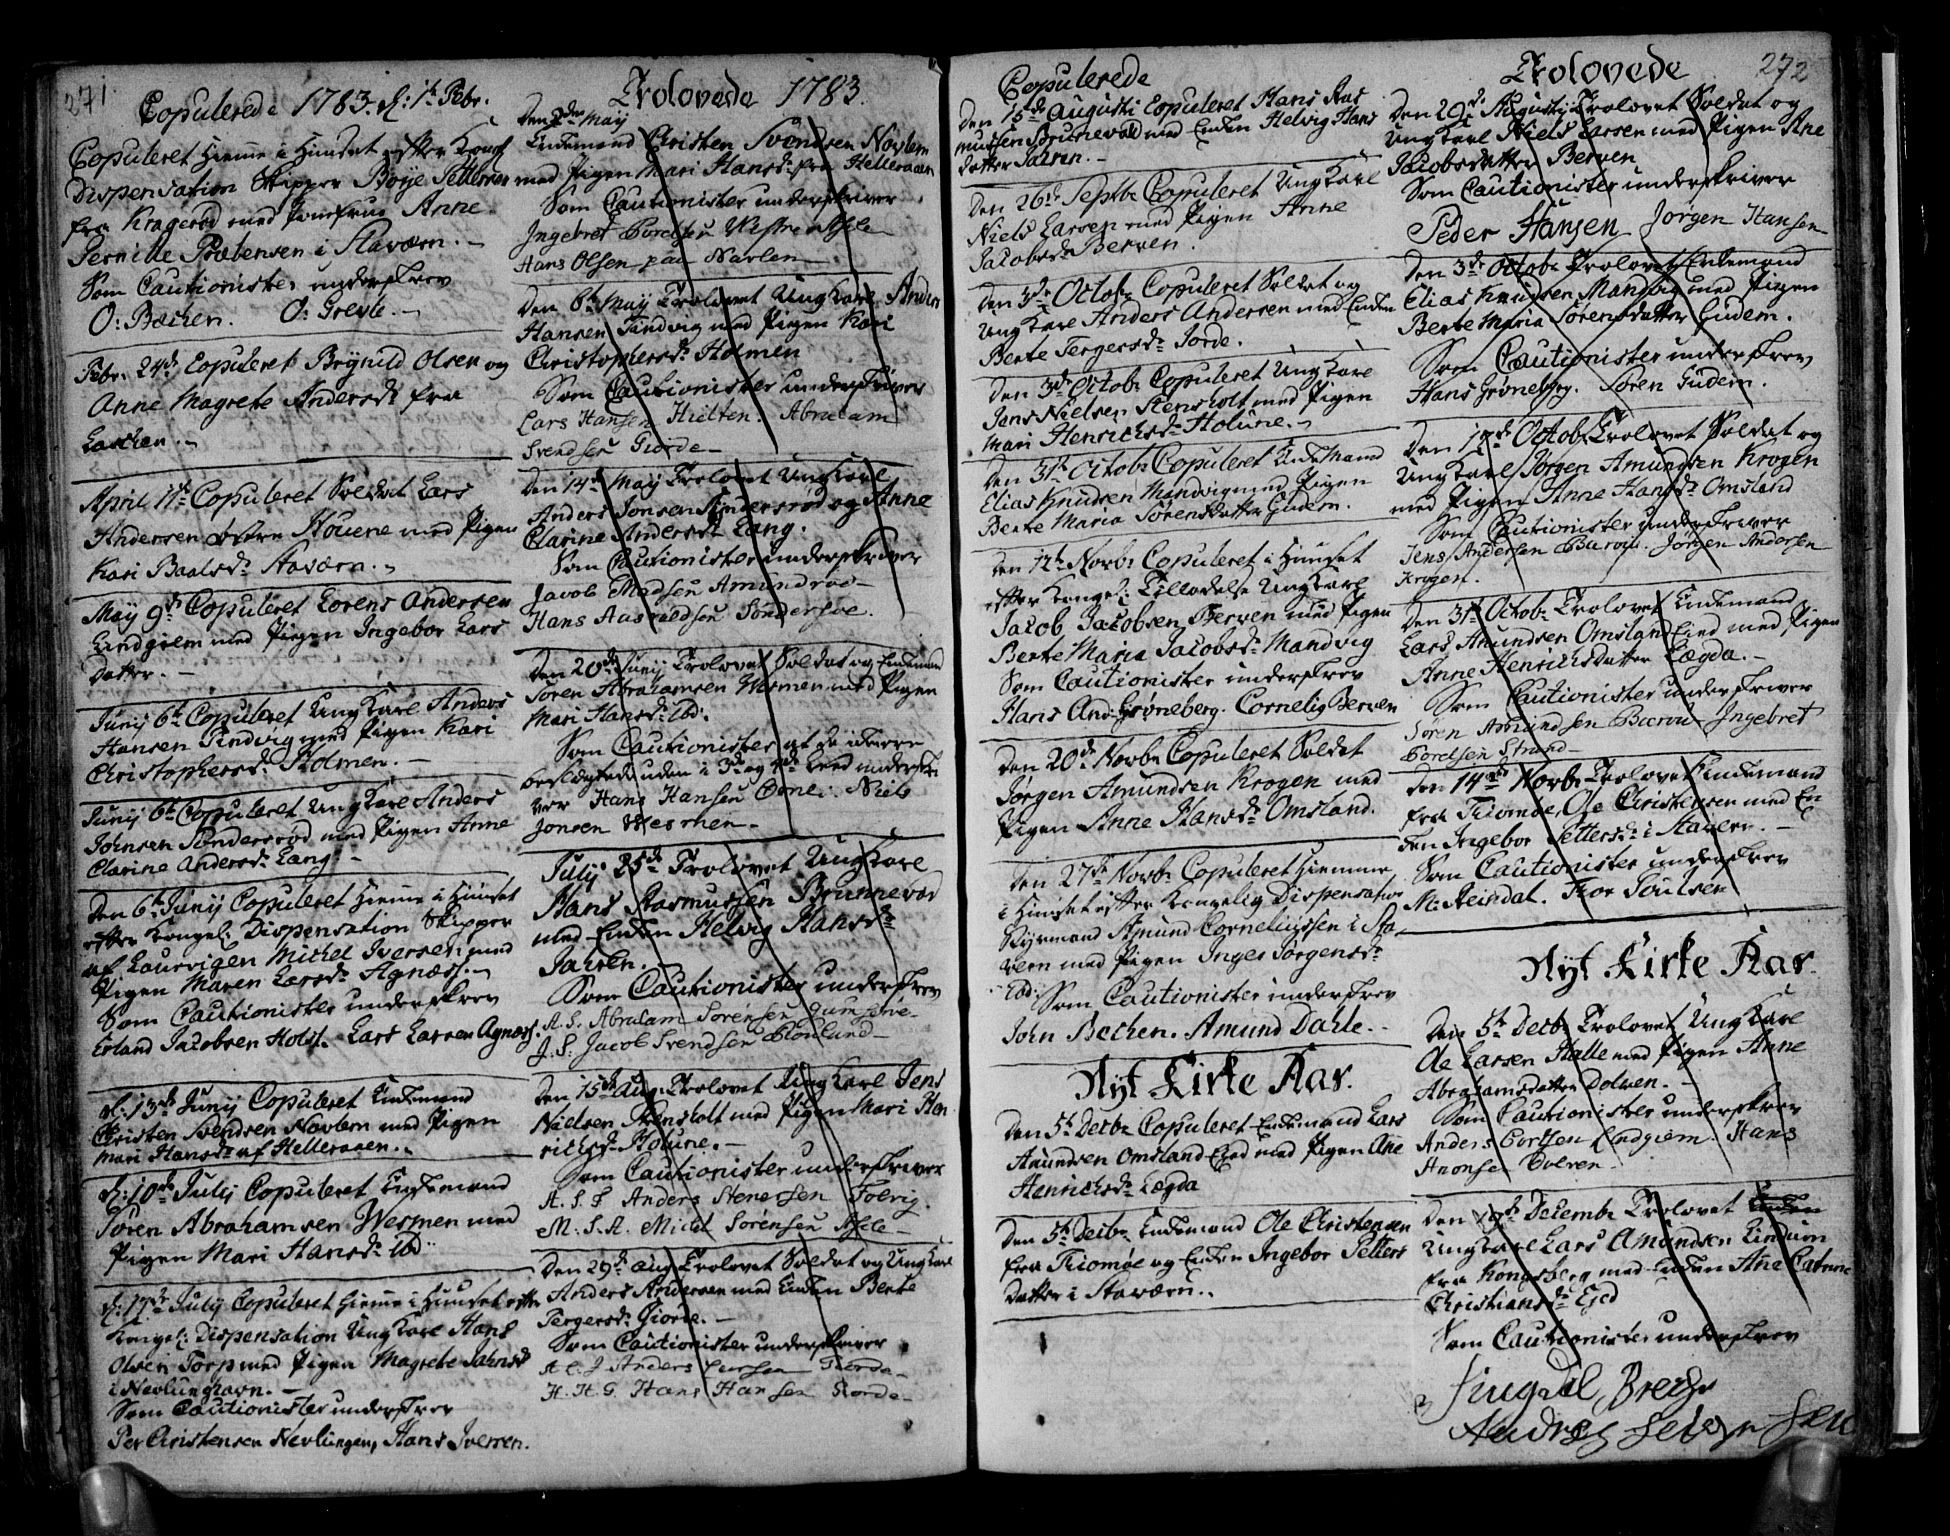 271.
Copulerede 1783. d: 1t Febr.
Copuleret hieme i Huuset efter Kongl
Dispensation Skipper Boye Pettersen
fra Kragerød med Jomfrue Anne
Pernille Præbensen i Staværn. -
Som Cautionister underskrev
O: Bechen. O: Greve. -
Febr. 24de Copuleret Brynild Olsen og
Anne Magrete Andersdr fra
Laschen. -
April 11te Copuleret Soldat Lars
Andersen Houene med Pigen
Kari Baalsdr Staværn. -
May 9de Copuleret Lorens Andersen
Lindgiem med Pigen Ingebor Lars
datter. -
Junij 6te Copuleret Ung Karl Anders
Hansen Tindvig med Pigen Kari
Christophersdr Holmen. -
Junij 6te Copuleret Ung Karl Anders
Johnsen Søndersrød med Pigen Anne
Clarine Andersdr Lang. -
Den 6te Junij Copuleret hieme i Huuset
efter Kongel: Dispensation Skipper
af Laurvigen Michel Iversen med
Pigen Maren Larsdr Agnæss. -
Som Cautionister underskrev
Erland Jacobsen Holst. Lars Larsen Agnæss.
d: 13de Junij Copuleret Enkemand
Christen Svendsen Navlem med Pigen
Mari Hansdr af Helleraaen. -
d: 10de Julij Copuleret Enkemand
Søren Abrahamsen Wesmen med
Pigen Mari Hansdr Ibd:
d: 17de July Copuleret hieme i Huuset efter
Kongel: Dispensation Ung Karl Hans
Olsen Torp med Pigen Magrete Jahnsdr
i Nevlunghavn. -
Som Cautionister underskrev
Per Christensen Nevlungen, Hans Iversen.
Trolovede 1783.
Den 2den May
Enkemand Christen Svendsen Navlem
med Pigen Mari Hansdr fra Helleraaen
Som Cautionister underskriver
Ingebret Boretsen Vestre Ahsle
Hans Olsen paa Navlem
Den 6te May Trolovet Ung Karl Anders
Hansen Tindvig med Pigen Kari
Christophersdr Holmen
Som Cautionister underskriver
Lars Hansen Hielten. Abraham
Svendsen Giorde -
Den 14de May Trolovet Ung Karl
Anders Jonsen Søndersrød og Anne
Clarine Andersdt Lang.
Som Cautionister underskriver
Jacob Madsen Amundrøe -
Hans Aasvaldsen Søndersøe.
Den 20de Junij Trolovet Soldat og Enkemand
Søren Abrahamsen Wesmen med Pigen
Mari Hansdr Ibd:
Som Cautionister at de ikke ere
beslægtede uden i 3de og 4de Leed underskri
ver Hans Hansen Niels
Jonsen Wesmen. -
Julij 25de Trolovet Ung Karl
Hans Rasmussen Brunnevad
med Enken Helvig Hansdr
Jahren. -
Som Cautionister underskrev
A. S. Abraham Sørensen
J. S: Jacob Svendsen
Den 15de Aug. Trolovet Ung Karl Jens
Nielsen Stensholt med Pigen Mari Hen
richsdr Holune. -
Som Cautionister underskriver
A. S. F Anders Stenersen Foevig
M. S. A. Michel Sørensen Ahsle -
Den 29de Aug Trolovet Soldat og Ung Karl
Anders Andersen med Enken Berte
Tergersdr Giorde. -
Som Cautionister underskriver
Anders Larsen Giorde -
H. H. G. Hans Hansen Giorde -
Copulerede
Den 15de Augusti Copuleret Hans Ras
mussen Brunnevad med Enken Helvig Hans
datter Jahren. -
Den 26de Septbr Copuleret Ung Karl
Niels Larsen med Pigen Anne
Jacobsdr Berven.
Den 3de Octobr Copuleret Soldat og
Ung Karl Anders Andersen med Enken
Berte Tergersdr Jorde.
Den 3de Octobr Copuleret Ung Karl
Jens Nielsen Stensholt med Pigen
Mari Henrichsdr Holune. -
Den 31te Octobr Copuleret Enkemand
Elias Knudsen Mandvig med Pigen
Berte Maria Sørensdatter Gudem.
Den 12te Novbr Copuleret i Huuset
efter Kongel: Tilladelse Ung Karl
Jacob Jacobsen Berven med Pigen
Berte Maria Jacobsdr Mandvig
Som Cautionister underskrev
Hans And: Grøneberg. Cornelig Berven
Den 20de Novbr Copuleret Soldat
Jørgen Amundsen Krogen med
Pigen Anne Hansdr Omsland.
Den 27de Novbr Copuleret hiemme
i Huuset efter Kongelig Dispensation
Styrmand Amund Corneliussen i Sta
vern med Pigen Inger Jørgensdr
Ibd:
Som Cautionister underskrev
John Bechen. Amund Dahle. -
Nyt Kirke Aar.
Den 5te Decbr Copuleret Enkemand Lars
Amundsen Omsland Eied med Pigen Ane
Henrichsdr Lægda
Den 5te Decbr Enkemand Ole Christensen
fra Tiømøe og Enken Ingebor Petters
datter i Staværn. -
272
Trolovede
Den 29de Augusti Trolovet Soldat og
Ung Karl Niels Larsen med Pigen Ane
Jacobsdatter Berven
Som Cautionister underskriver
Peder Hansen Jørgen Hansen
Den 3de Octobr Trolovet Enkemand
Elias Knudsen Mandvig med Pigen
Berte Maria Sørensdatter Gudem.
Som Cautionister underskrev
Hans Grøneberg. Søren Gudem.
Den 17de Octobr Trolovet Soldat og
Ung Karl Jørgen Amundsen Krogen
med Pigen Anne Hansdr Omsland
Som Cautionister underskriver
Jens Andersen Barøu. Jørgen Andersen
Krogen.
Den 31te Octobr Trolovet Enkemand
Lars Amundsen Omsland Eied med Pigen
Anne Henrichsdatter Lægda. -
Som Cautionister underskriver
Søren Amundsen Barøu Ingebret
Boretsen Strand -
Den 14de Novbr Trolovet Enkemand
fra Tiømøe, Ole Christensen med En
ken Ingebor Pettersdr i Stavern. -
Som Cautionister underskrev
M: Reindal. Thor Poulsen
Nyt Kirke Aar.
Den 5te Decbr Trolovet Ung Karl
Ole Larsen Halle med Pigen Anne
Abrahamsdatter Dolven. -
Som Cautionister underskrev
Anders Bortsen Lindgiem. Hans
Anonsen Dolven -
Den 19de Decembr Trolovet
Ung Karl Lars Amundsen Lindum
fra Kongsberg med Enken Ane Catrine
Christiansdr Eyed
Som Cautionister underskrev